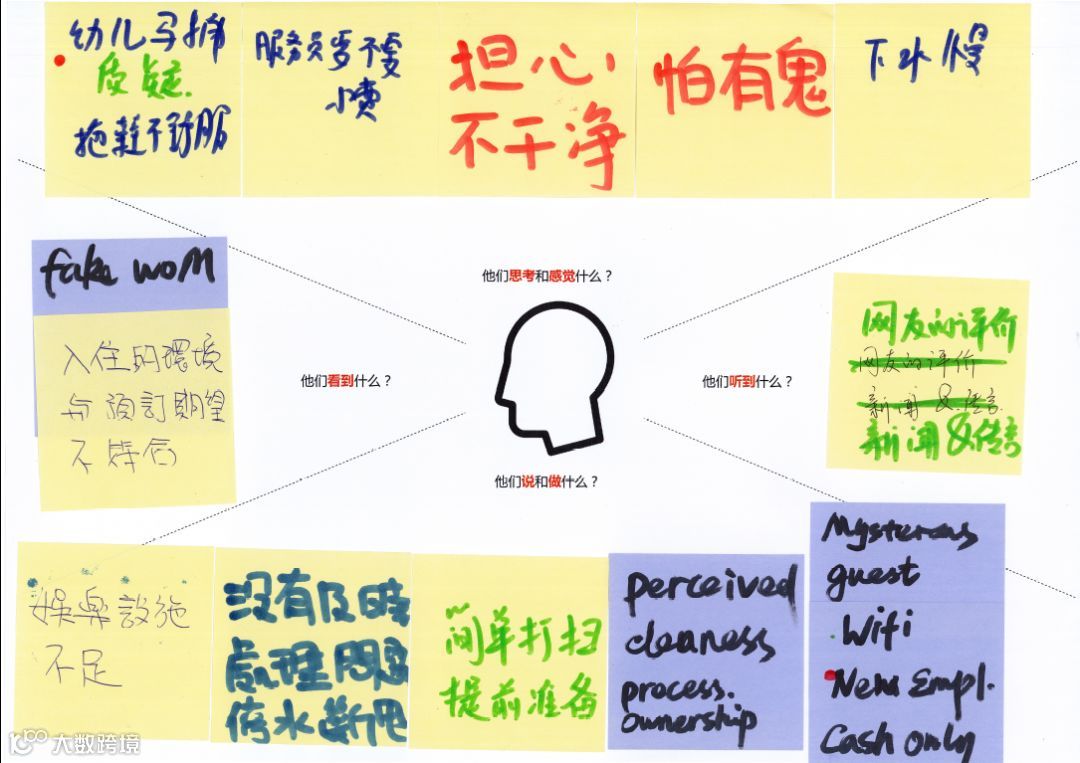 幼儿马桶
质疑.
拖鞋不舒服
服务员要不要
小费
担心
不干净
怕有鬼
下水慢
他们思考和感觉什么？
fake WOM
入住的環境
与預訂期望
不符合
他们看到什么？
他们听到什么？
网友的评价
网友的评价
新闻&传言
新闻&传言
他们说和做什么？
娱楽設施
不足
没有及時
處理問題
停水斷电
简单打扫
提前准备
perceived
cleaness
process.
ownership
Mysterous
guest
Wifi
New Empl.
Cash only
大数跨境